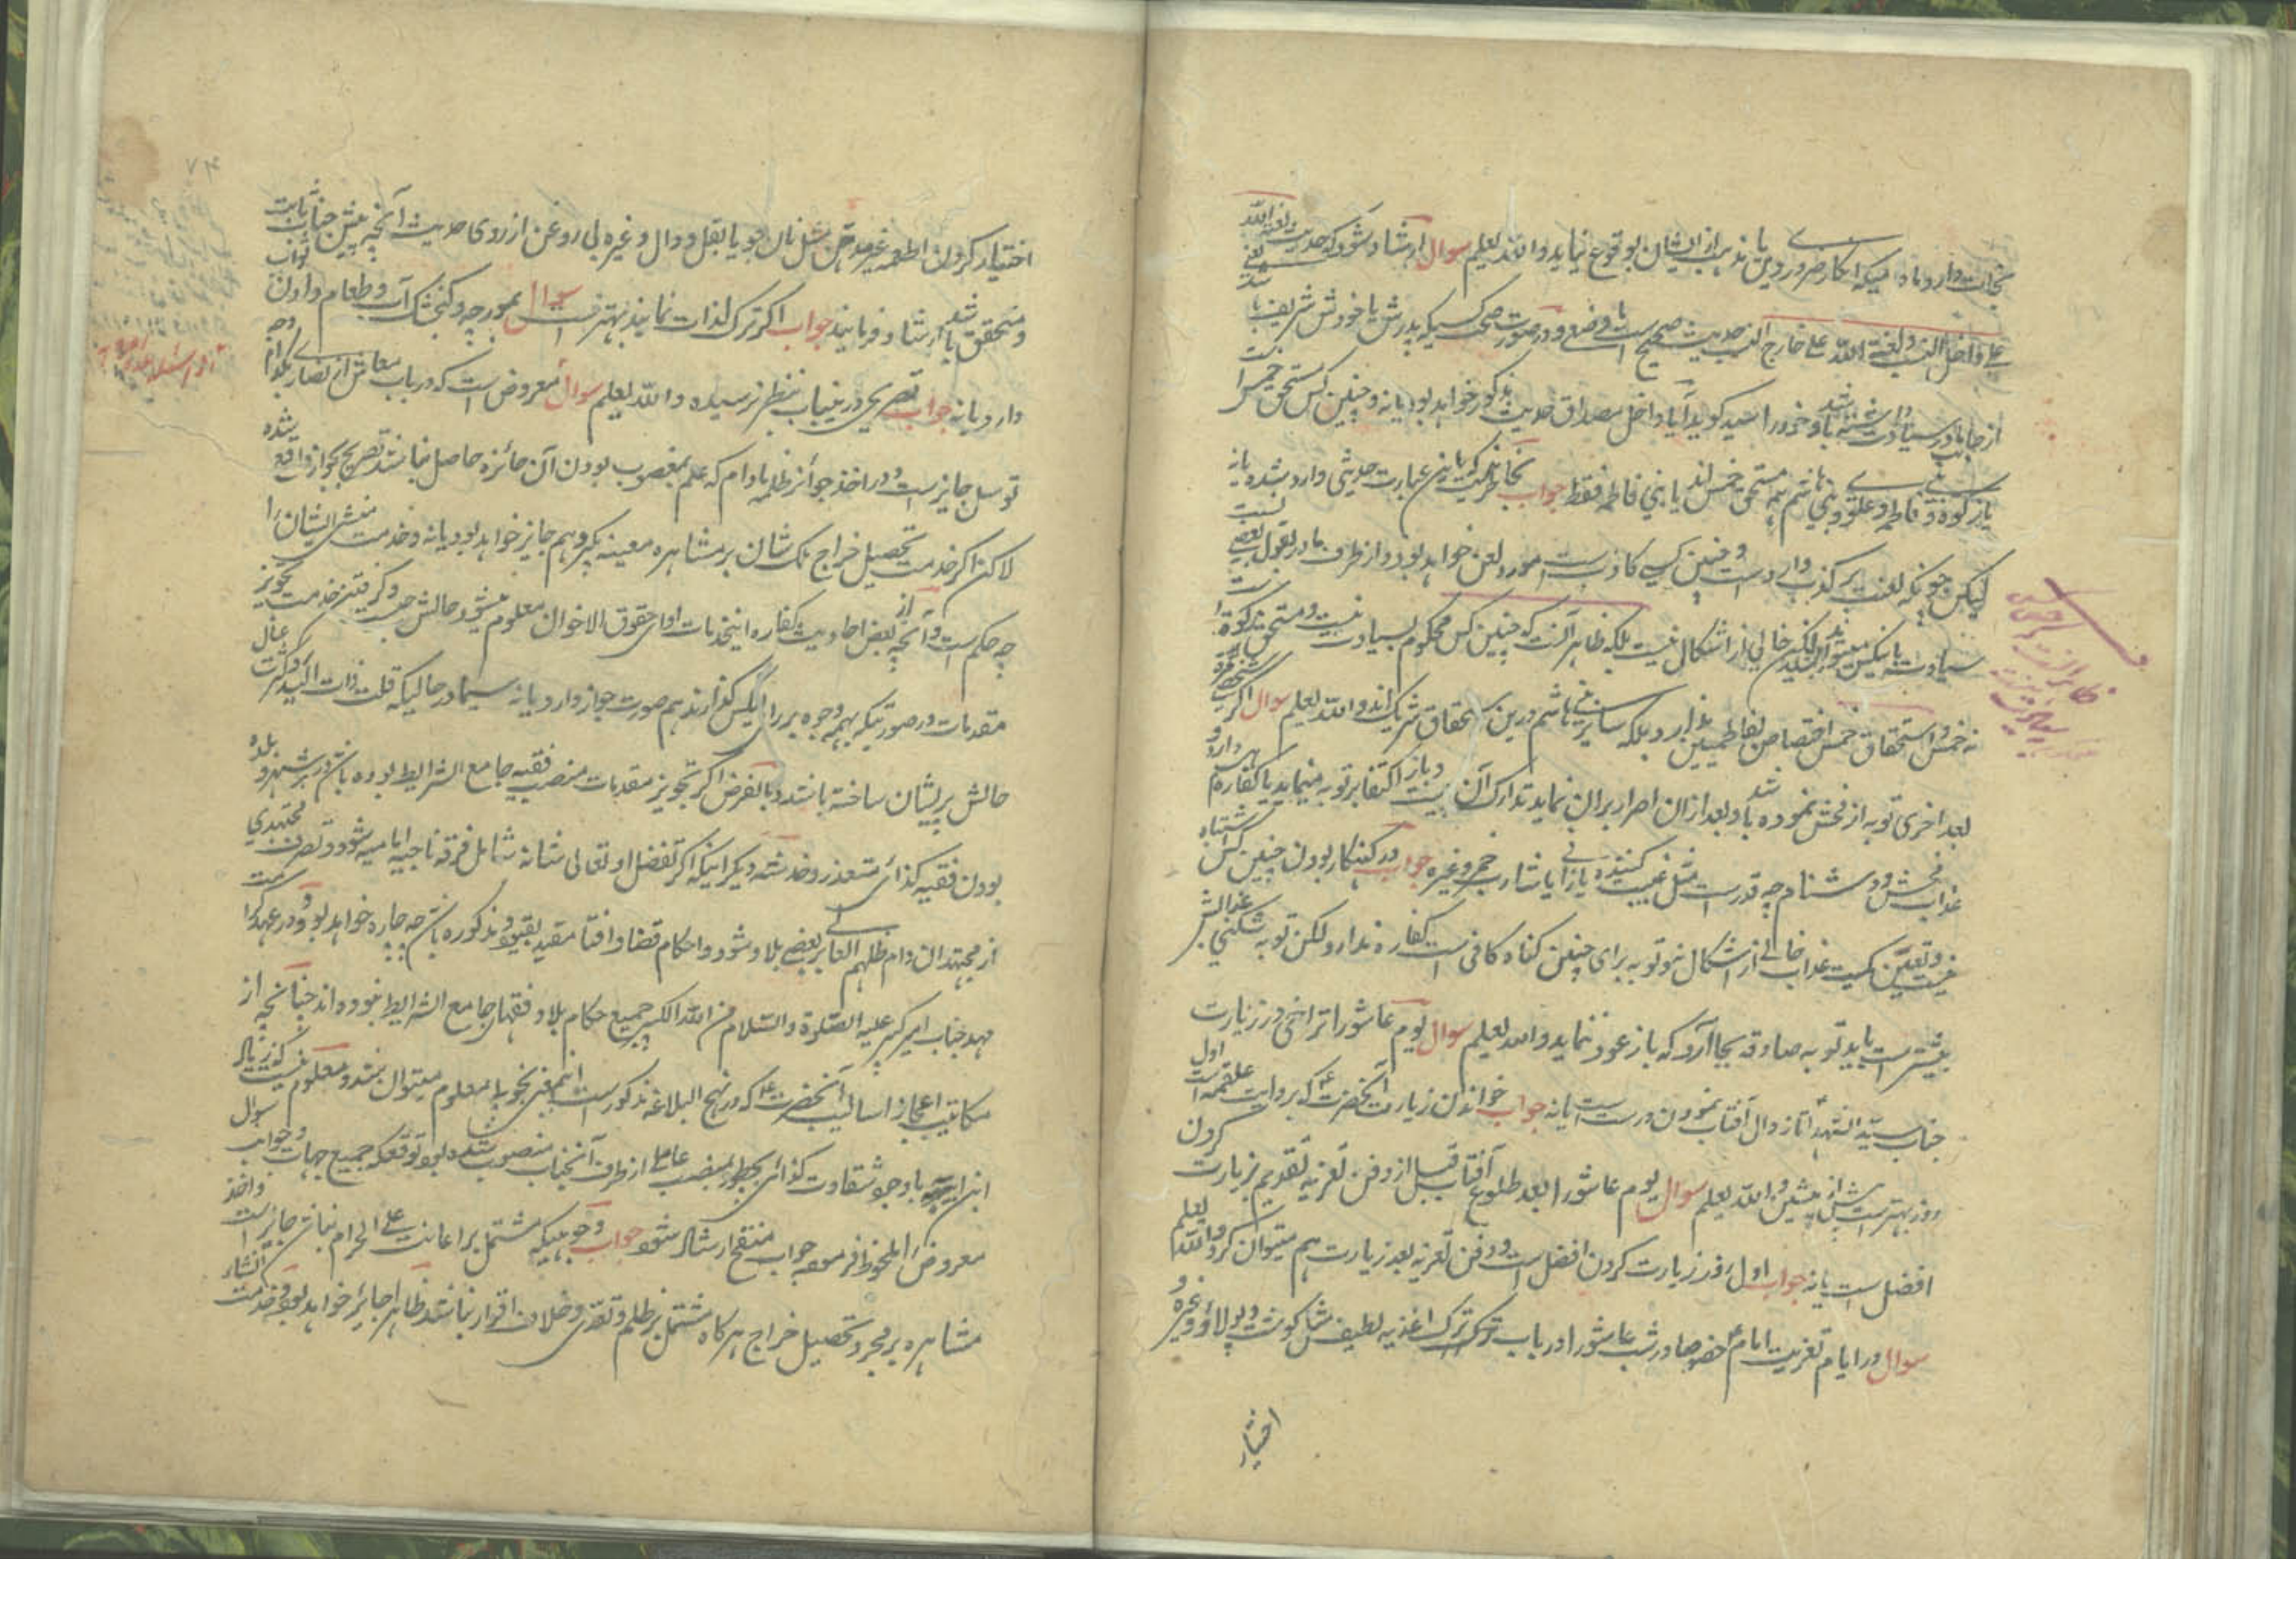 نجات دارد مادامیکه انکار ضروری دین یا مذهب ازایشان بوقوع نیاید والله یعلم سوال ارشاد شود که حدیث لعنة الله
علی داخل النسب و لعنة الله علی خارج النسب حدیث صحیح است یا وضعی و درصورت صحت کسیکه پدرش یا خودش شریف یا
از جانب مادر سیادت داشته باشد و خود را سید گوید آیا داخل مصداق حدیث مذکور خواهد بود یا نه و چنین کس مستحق خمس است
یا زکوة و فاطمی و علوی و بنی هاشم همه مستحق خمس اند یا بنی فاطمه فقط جواب بخاطر نیست که باین عبارت حدیثی وارد شده یا نه
لیکن چونکه لعنت بر کذب وارد است و چنین کسی کاذب است مورد لعن خواهد بود و از طرف مادر بقول بعضی نسبت
سیادت باینکس میتواند لیکن خالی از اشکال نیست بلکه ظاهر آنست که چنین کس محکوم بسیادت نیست و مستحق زکوة است
نه خمس و استحقاق خمس اختصاص بفاطمیین ندارد بلکه سائر بنی هاشم درین استحقاق شریک اند والله یعلم سوال اگر شخصی
بعد اخری توبه از فحش نموده باشد و بعد ازان اصرار بران نماید تدارک آن چیست و باز اکتفا بر توبه مینماید یا کفاره هم دارد و
عذاب فحش و دشنام چه قدر است مثل غیبت کننده یا زانی یا شارب خمر و غیره جواب در گنهکار بودن چنین کس اشتباه
نیست و تعیّن کمیت عذاب خالی از اشکال نبود و توبه برای چنین گناه کافی است کفاره ندارد لکن توبه شکنی عذابش
بیشتر است باید توبه صادقه بجا آرد که باز عود ننماید والله یعلم سوال یوم عاشورا تراخی در زیارت
جناب سید الشهدا تا زوال آفتاب نمودن درست است یا نه جواب خواندن زیارت آنحضرت که بروایت علقمه است اول
روز بهتر است پیش از پیشین والله یعلم سوال یوم عاشورا بعد طلوع آفتاب قبل از دفن تعزیه تقدیم زیارت کردن
افضل است یا نه جواب اول روز زیارت کردن افضل است و دفن تعزیه بعد زیارت هم میتوان کرد والله یعلم
سوال در ایام تعزیت امام خصوصا در شب عاشورا در باب ترک اغذیه لطیف مثل گوشت و پلاؤ و غیره و
اختیار
اختیار کردن اطعمه غیر مثل نان جو یا بقل و دال و غیره بی روغن از روی حدیث آنچه پیش جناب ثابت
و متحقق باشد ارشاد فرمایند جواب اگر ترک لذات نمایند بهتر است سوال بمورچه و کنجشک آب و طعام دادن ثواب
دارد یا نه جواب تصریحی درینباب بنظر نرسیده والله یعلم سوال معروض است که در باب معاش از نصاری بکدام وجه
توسل جایز است و در اخذ جوائز ظلمه مادام که علم بمغصوب بودن آن جائزه حاصل نباشد تصریح بجواز واقع شده
لاکن اگر خدمت تحصیل خراج ملک شان بر مشاهره معینه بگیرد هم جایز خواهد بود یا نه و خدمت منشی ایشان را
چه حکم است و آنچه از بعض احادیث کفاره اینخدمات ادای حقوق الاخوان معلوم میشود حالش چیست و گرفتن خدمت تجویز
مقدمات در صورتیکه بهمه وجوه بر رای انگلیس گذارند هم صورت جواز دارد یا نه سیما در حالیکه قلت ذات الید و کثرت عیال
حالش پریشان ساخته باشد و بالفرض اگر تجویز مقدمات منصب فقیه جامع الشرایط بوده باشد در هر شهر و بلده
بودن فقیه کذائی متعذر و خدشه دیگر اینکه اگر تفضل او تعالی شانه شامل فرقه ناجیه امامیه شود و تصرف مجتهدی
از مجتهدان دام ظلهم العالی بر بعضی بلاد شود و احکام قضا و افتا مقید بقیود مذکوره باشد چه چاره خواهد بود و در عهد کرامت
مهد جناب امیر کبیر علیه الصلوة والسلام من الله الکبیر جمیع حکام بلاد فقهای جامع الشرایط نبوده اند چنانچه از
مکاتیب اعجاز اسالیب آنحضرت که در نهج البلاغه مذکور است اینمعنی بخوبی معلوم میتوان شد و معلوم نیست که زیاد
ابن ابیه باوجود شقاوت کذائی بچطور بمنصب عاملی از طرف آنجناب منصوب شده بود توقع که جمیع جهات سوال و جواب
معروض را ملحوظ فرموده جواب منتقح ارشاد شود جواب وجوهیکه مشتمل بر اعانت علی الحرام نباشد جایز است و اخذ
مشاهره بر مجرد تحصیل خراج هرگاه مشتمل بر ظلم و تعدی و خلاف اقوار نباشد ظاهرا جایز خواهد بود و خدمت انشاء